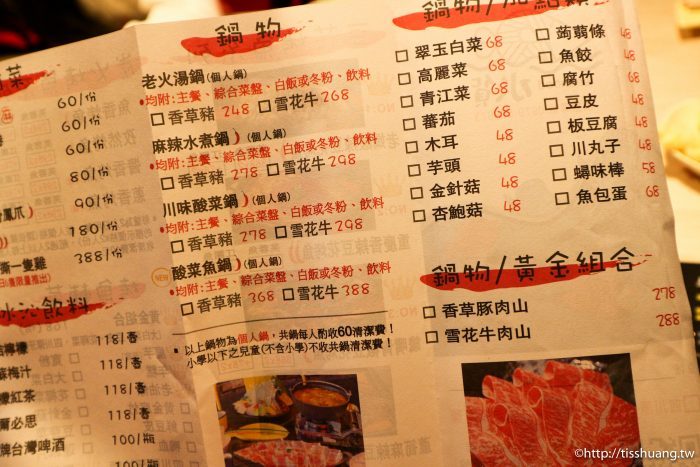 菜
60/份
60/份
80/份
鳳爪)
90/份
180/份
撕一隻雞
388/份
冰沁飲料
檸檬
118/壺
蘇梅汁
118/壺
檬紅茶
118/壺
爾必思
118/壺
牌台灣啤酒
100/瓶
鍋物
老火湯鍋(個人鍋)
•均附:主餐、綜合菜盤、白飯或冬粉、飲料
□香草豬 248 □雪花牛 268
麻辣水煮鍋)(個人鍋)
•均附:主餐、綜合菜盤、白飯或冬粉、飲料
□香草豬 278 □雪花牛 298
川味酸菜鍋)(個人鍋)
•均附:主餐、綜合菜盤、白飯或冬粉、飲料
□香草豬 278 □雪花牛 298
NEW 酸菜魚鍋)(個人鍋)
•均附:主餐、綜合菜盤、白飯或冬粉、飲料
□香草豬 368 □雪花牛 388
•以上鍋物為個人鍋，共鍋每人酌收60清潔費！
小學以下之兒童(不含小學)不收共鍋清潔費！
鍋物/加點類
□翠玉白菜 68
□高麗菜 68
□青江菜 68
□蕃茄 68
□木耳 48
□芋頭 48
□金針菇 48
□杏鮑菇 48
□蒟蒻條 48
□魚餃 48
□腐竹 68
□豆皮 48
□板豆腐 48
□川丸子 48
□蟳味棒 58
□魚包蛋 68
鍋物/黃金組合
□香草豚肉山 278
□雪花牛肉山 288
©http://tisshuang.tw